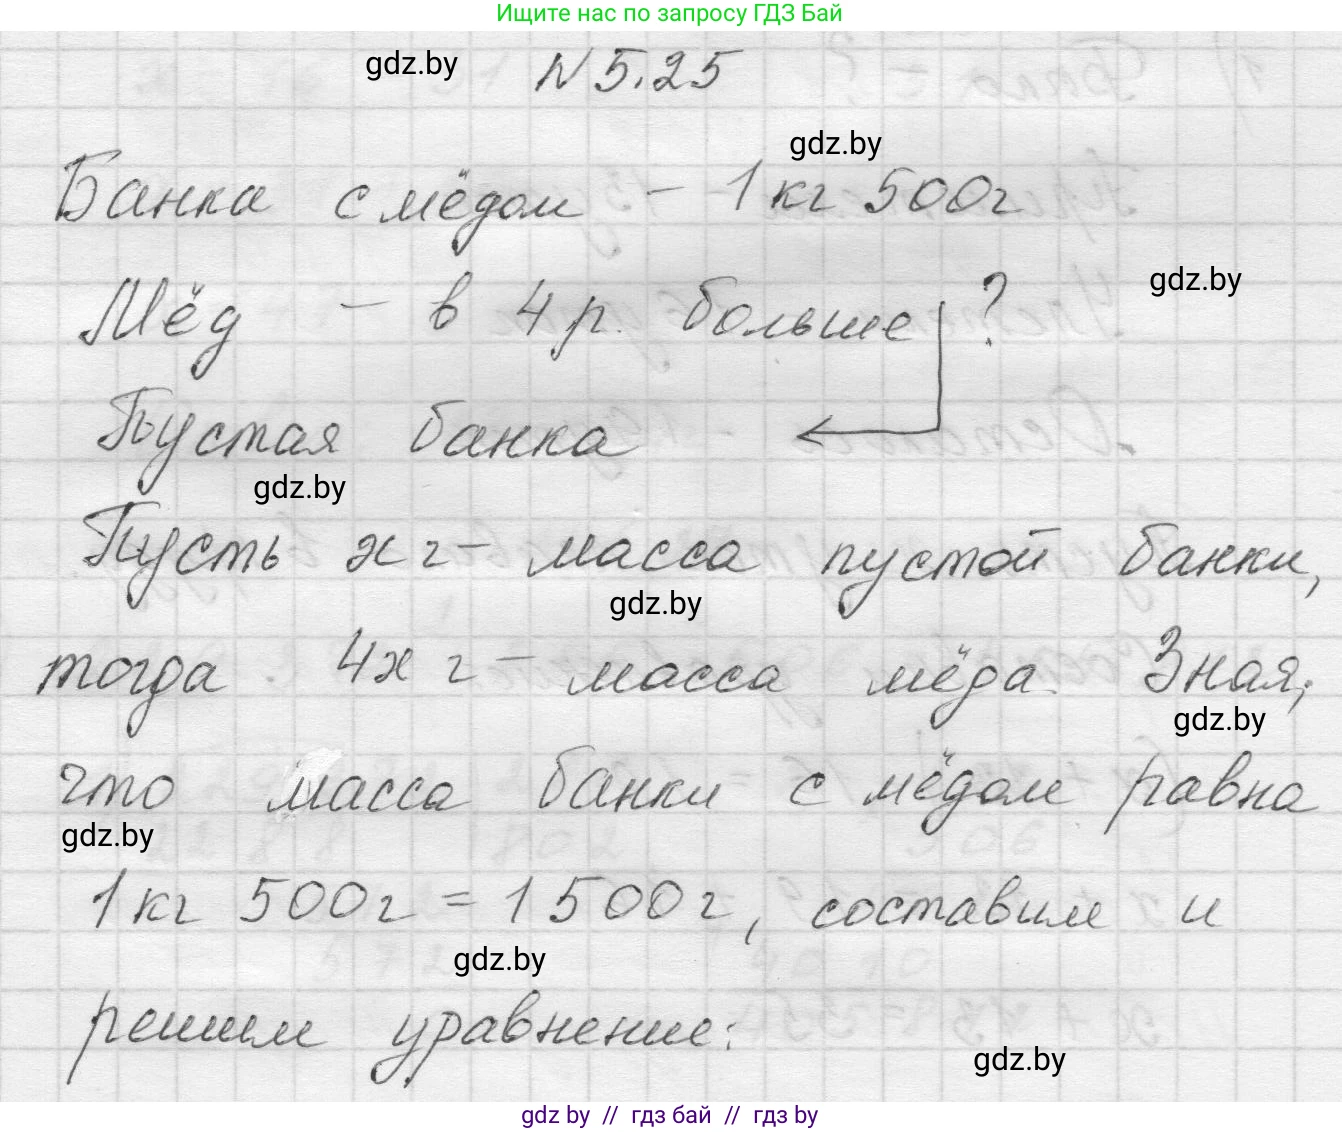 Ищите нас по запросу ГДЗ Бай
gdz.by
N 5.25
gdz.by
Банка с мёдом – 1 кг 500 г
gdz.by
Мёд – в 4 р. больше ?
Пустая банка
gdz.by
Пусть x г – масса пустой банки,
gdz.by
тогда 4x г – масса мёда. Зная,
gdz.by
что масса банки с мёдом равна
gdz.by
1 кг 500 г = 1500 г, составим и
gdz.by
решим уравнение:
gdz.by
gdz by // гдз бай // гдз by